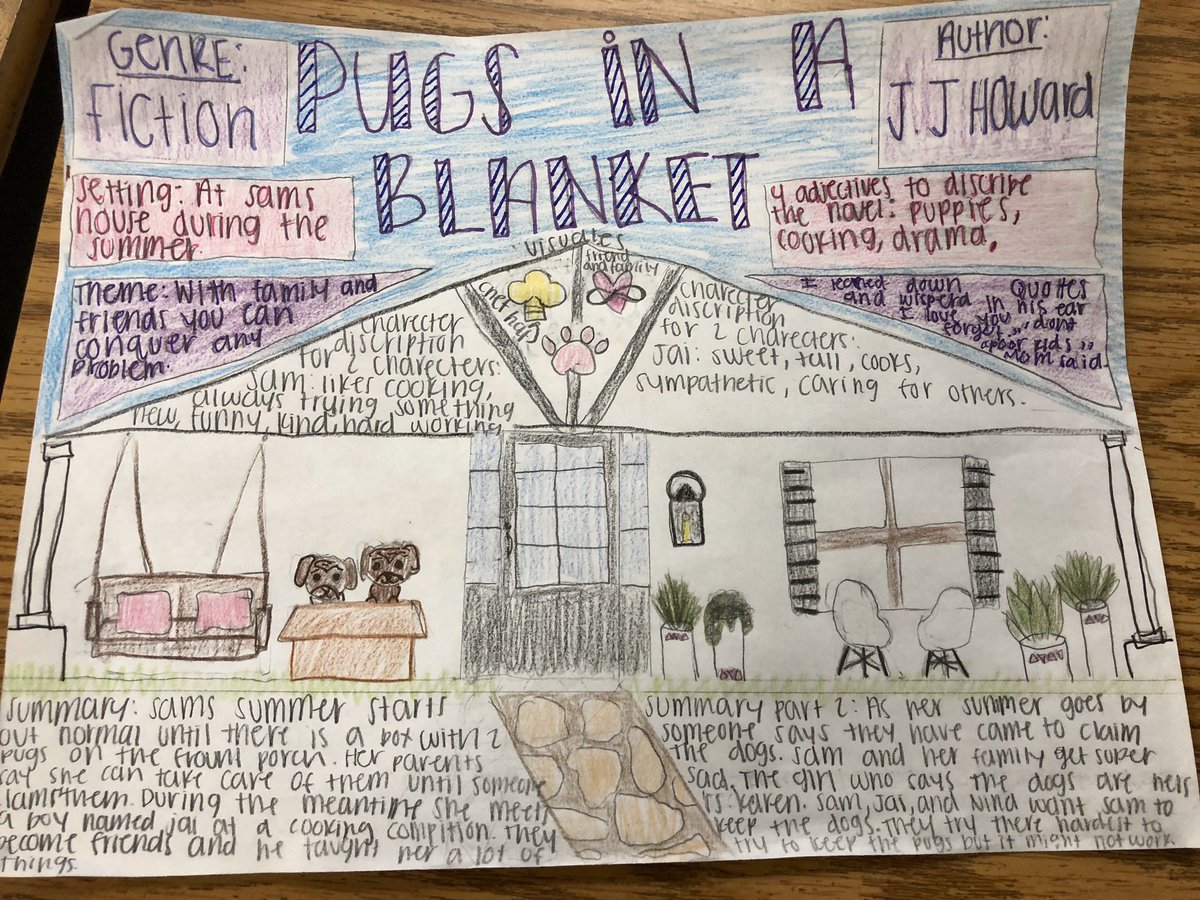 GENRE:
Fiction
PUGS IN A
BLANKET
Author:
J.J Howard
Setting: At sams
house during the
summer.
4 adjectives to discribe
the novel: puppies,
cooking, drama,
Theme: With family and
friends you can
conquer any
problem.
visuales
chef hat
friend
and family
Quotes
I leaned down
and wispered in his ear
I love you, dont
forget,,
kids,,
Mom said.
charecter
discription
for 2 charecters:
Sam: likes cooking,
always trying something
new, funny, kind, hard working
charecter
discription
for 2 charecters:
Jai: sweet, tall, cooks,
sympathetic, caring for others.
Summary: sams summer starts
out normal until there is a box with 2
pugs on the frount porch. Her parents
say she can take care of them until someone
them. During the meantime she meets
a boy named jai at a cooking compition. They
become friends and he taught her a lot of
things.
Summary part 2: As her summer goes by
someone says they have came to claim
the dogs. Sam and her family get super
sad. The girl who says the dogs are hers
is karen. Sam, Jai, and Nina want sam to
keep the dogs. They try there hardest to
try to keep the pugs but it might not work